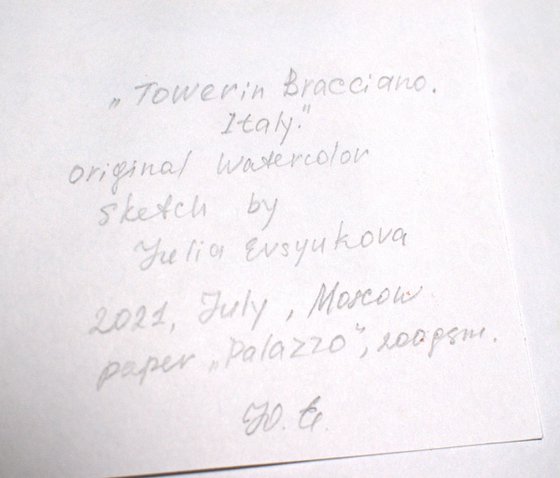 „Tower in Bracciano.
Italy."
original watercolor
sketch by
Julia Evsyukova
2021, July, Moscow
paper „Palazzo", 200gsm.
Ю. Е.